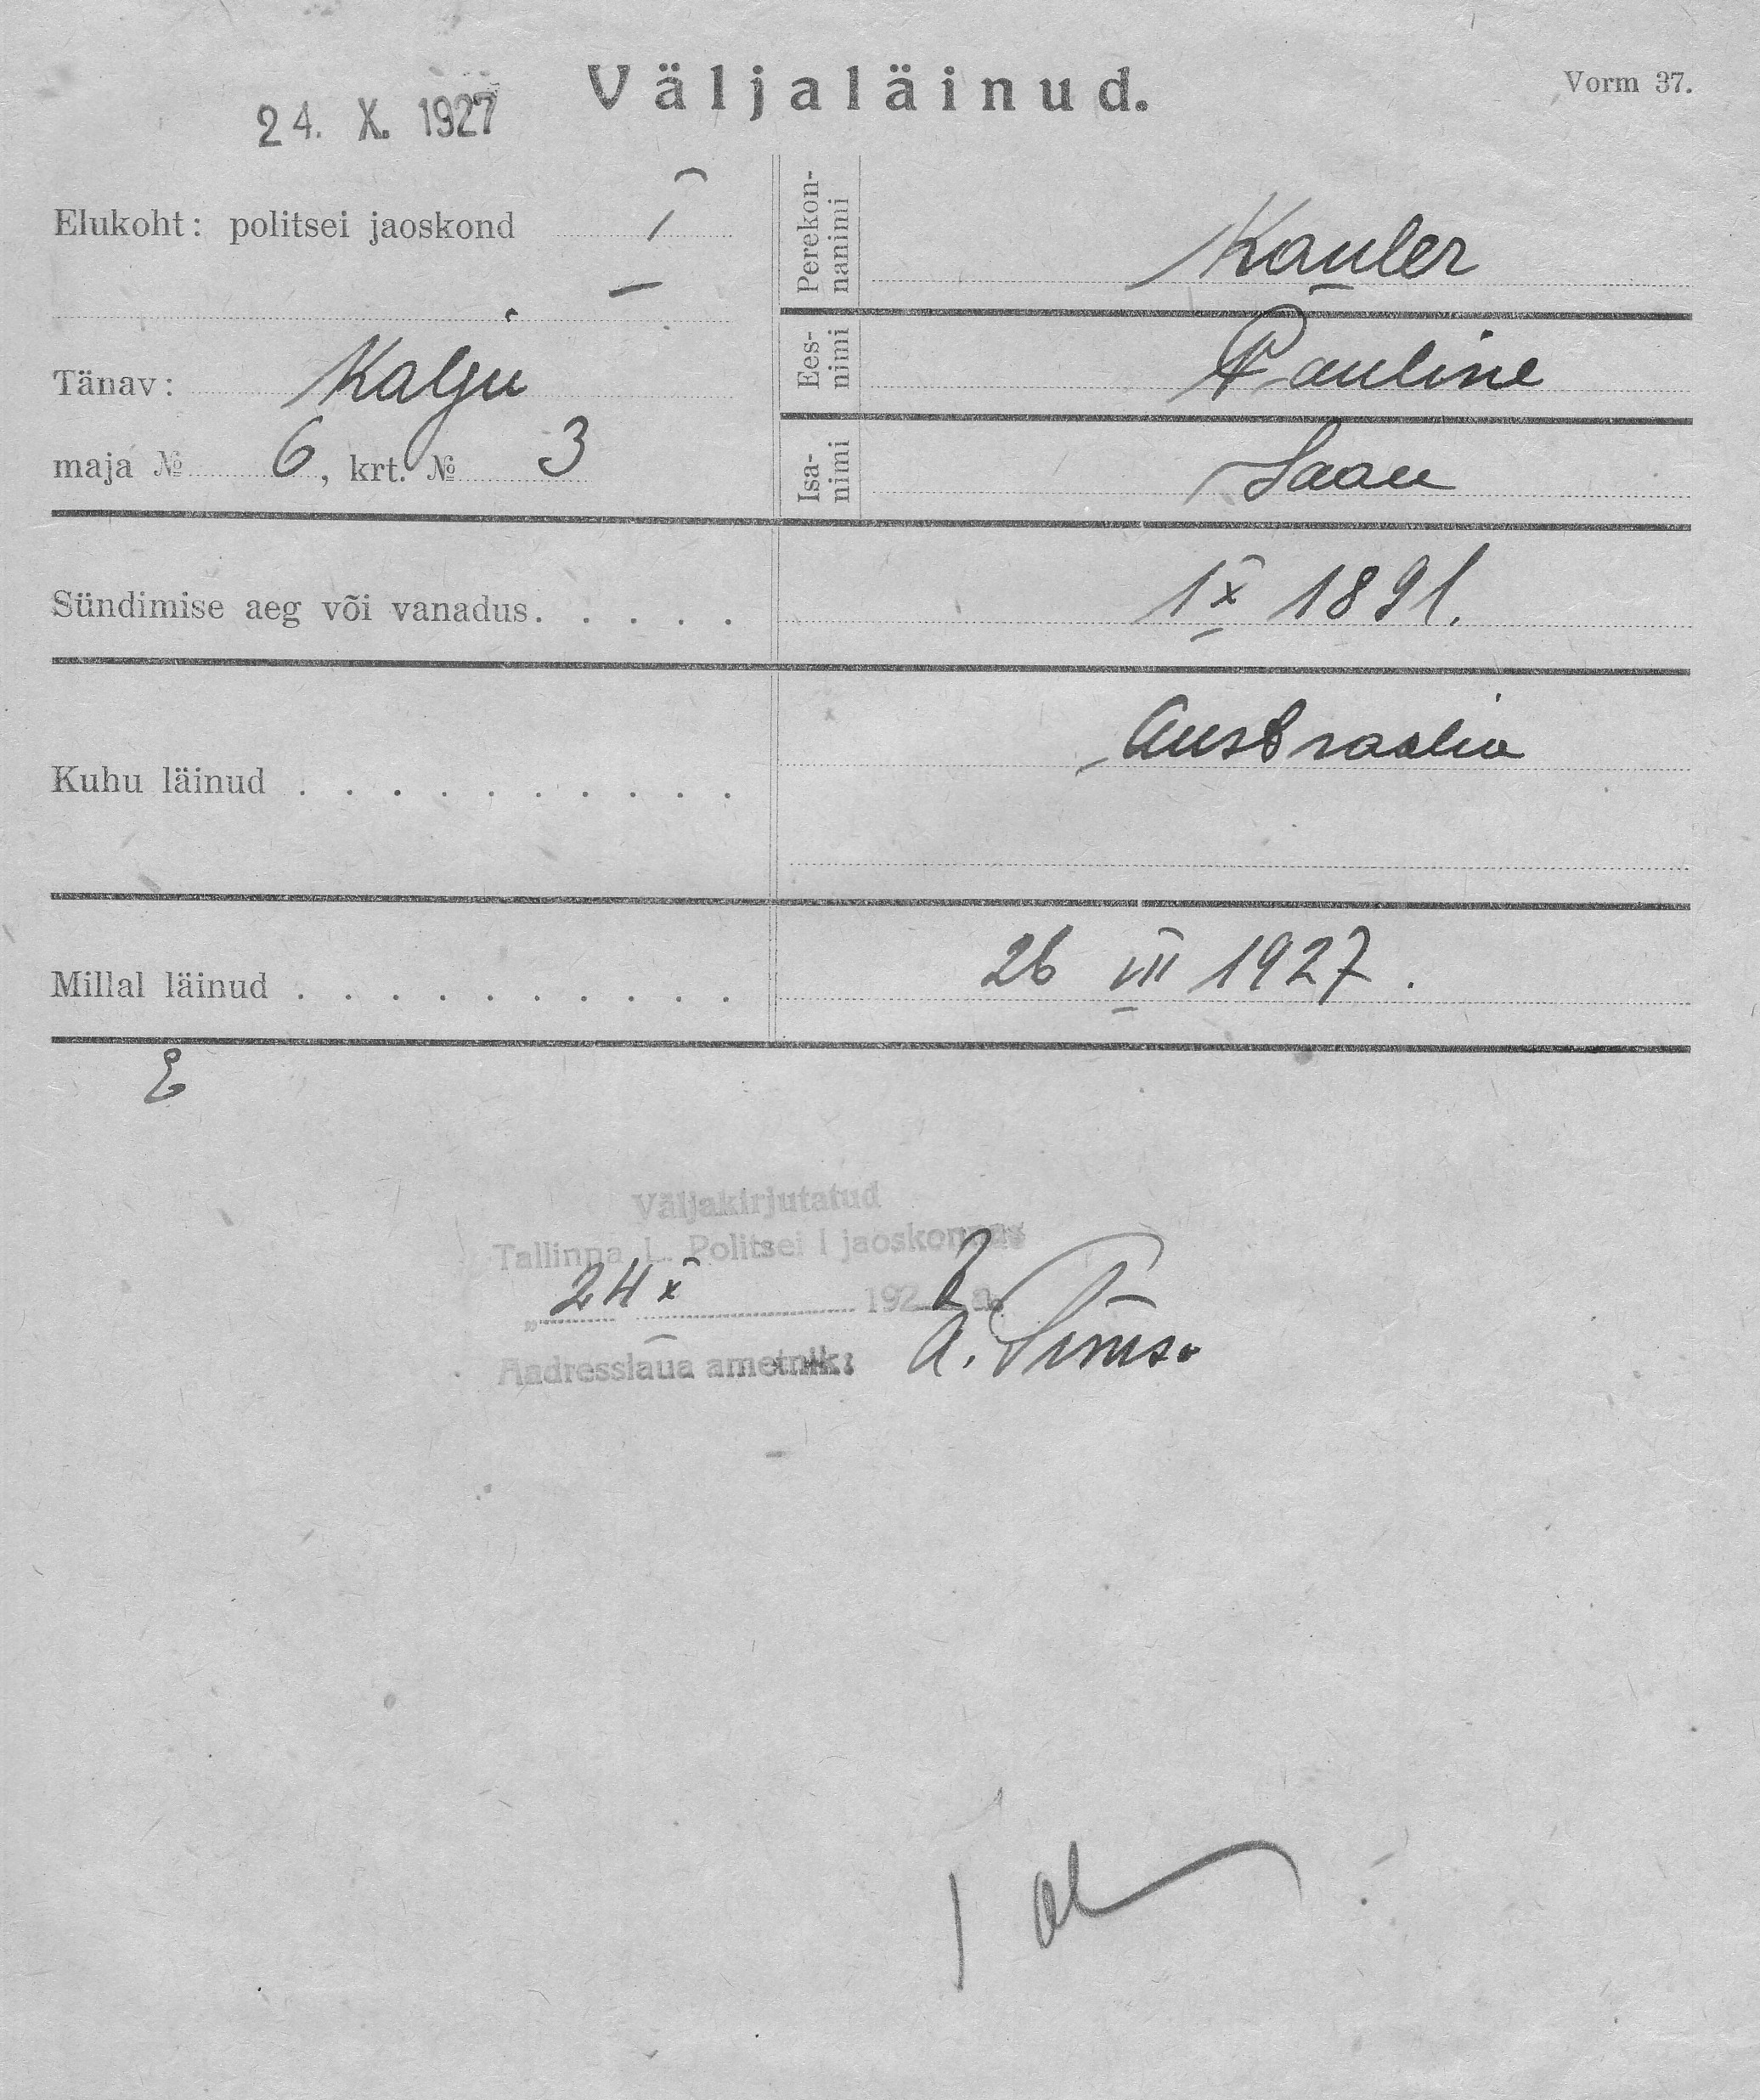 Väljaläinud.
Vorm 37.
24. X. 1927
Elukoht: politsei jaoskond I
Tänav: Kalju
maja № 6, krt. № 3
Perekon-
nanimi
Kauler
Ees-
nimi
Pauline
Isa-
nimi
Jaan
Sündimise aeg või vanadus. . . . . 1 X 1891.
Kuhu läinud . . . . . . . . . . Austraalia
Millal läinud . . . . . . . . . . 26 VII 1927.
E
Väljakirjutatud
Tallinna L. Politsei I jaoskonnas
„24 X 1927 a.
Aadresslaua ametnik: